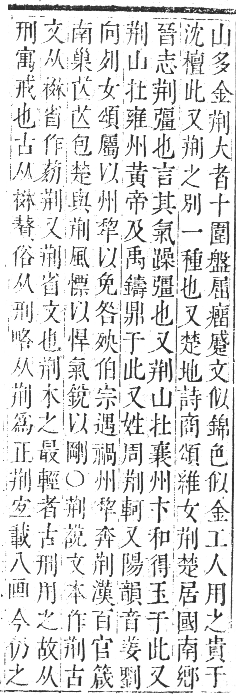 山多金荆大者十圍盤屈瘤蹙文似錦色似金工人用之貴于
沈檀此又荆之別一種也又楚地詩商頌維女荆楚居國南鄉
晉志荆彊也言其氣躁彊也又荆山在襄州卞和得玉于此又
荆山在雍州黃帝及禹鑄鼎于此又姓周荆軻又陽韻音姜劉
向列女頌屬以州犂以免咎殃伯宗遇禍州犂奔荆漢百官箴
南巢茨芑包楚與荆風慓以悍氣銳以剛○荆說文本作𠛬古
文从𣏟省作𦮺荆又荆省文也荆木之最輕者古刑用之故从
刑寓戒也古从𣏟聱俗从刑略从荆爲正荆宜載八画今仍之